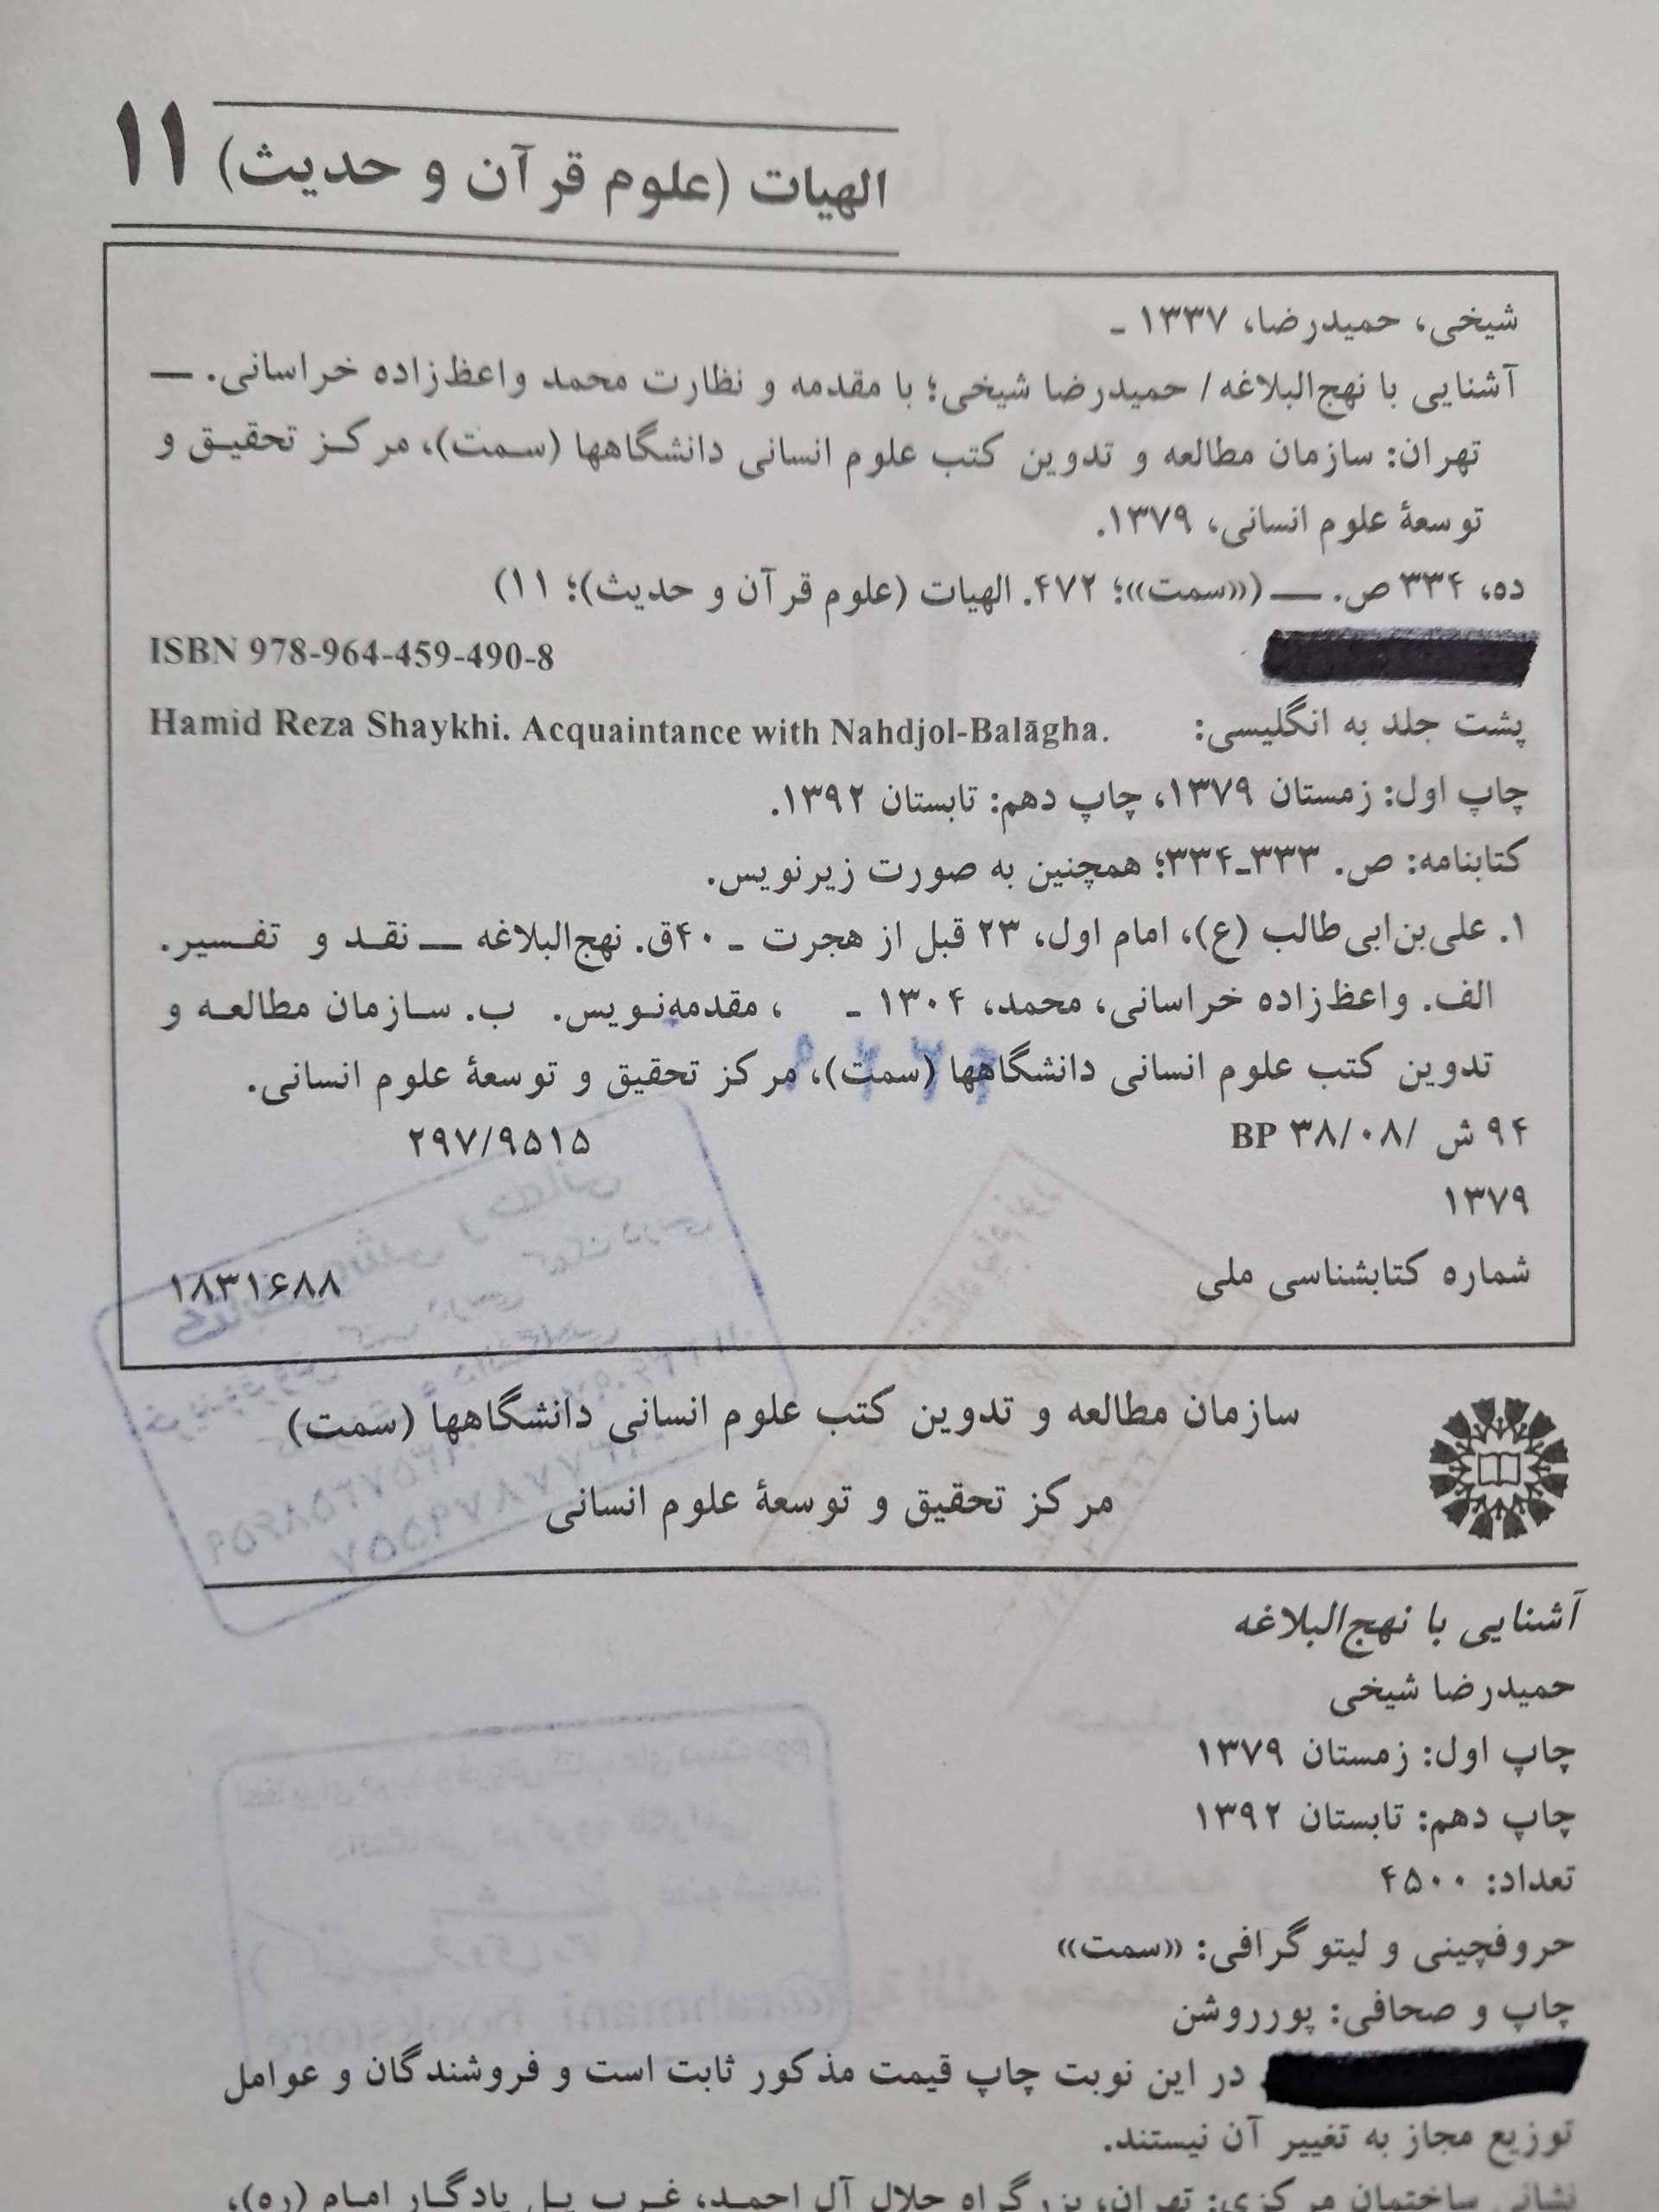 الهیات (علوم قرآن و حدیث) ۱۱
شیخی، حمیدرضا، ۱۳۳۷ ـ
آشنایی با نهج‌البلاغه / حمیدرضا شیخی؛ با مقدمه و نظارت محمد واعظ‌زاده خراسانی. —
تهران: سازمان مطالعه و تدوین کتب علوم انسانی دانشگاهها (سمت)، مرکز تحقیق و
توسعۀ علوم انسانی، ۱۳۷۹.
ده، ۳۳۴ ص. — («سمت»؛ ۴۷۲. الهیات (علوم قرآن و حدیث)؛ ۱۱)
ISBN 978-964-459-490-8
پشت جلد به انگلیسی: Hamid Reza Shaykhi. Acquaintance with Nahdjol-Balāgha.
چاپ اول: زمستان ۱۳۷۹، چاپ دهم: تابستان ۱۳۹۲.
کتابنامه: ص. ۳۳۳ـ۳۳۴؛ همچنین به صورت زیرنویس.
۱. علی‌بن‌ابی‌طالب (ع)، امام اول، ۲۳ قبل از هجرت ـ ۴۰ق. نهج‌البلاغه — نقد و تفسیر.
الف. واعظ‌زاده خراسانی، محمد، ۱۳۰۴ ـ ، مقدمه‌نویس. ب. سازمان مطالعه و
تدوین کتب علوم انسانی دانشگاهها (سمت)، مرکز تحقیق و توسعۀ علوم انسانی.
۹۴ ش / BP ۳۸/۰۸ ۲۹۷/۹۵۱۵
۱۳۷۹
شماره کتابشناسی ملی ۱۸۳۱۶۸۸
سازمان مطالعه و تدوین کتب علوم انسانی دانشگاهها (سمت)
مرکز تحقیق و توسعۀ علوم انسانی
آشنایی با نهج‌البلاغه
حمیدرضا شیخی
چاپ اول: زمستان ۱۳۷۹
چاپ دهم: تابستان ۱۳۹۲
تعداد: ۴۵۰۰
حروفچینی و لیتوگرافی: «سمت»
چاپ و صحافی: پورروشن
در این نوبت چاپ قیمت مذکور ثابت است و فروشندگان و عوامل
توزیع مجاز به تغییر آن نیستند.
نشانی ساختمان مرکزی: تهران، بزرگراه جلال آل احمد، غرب پل یادگار امام (ره)،